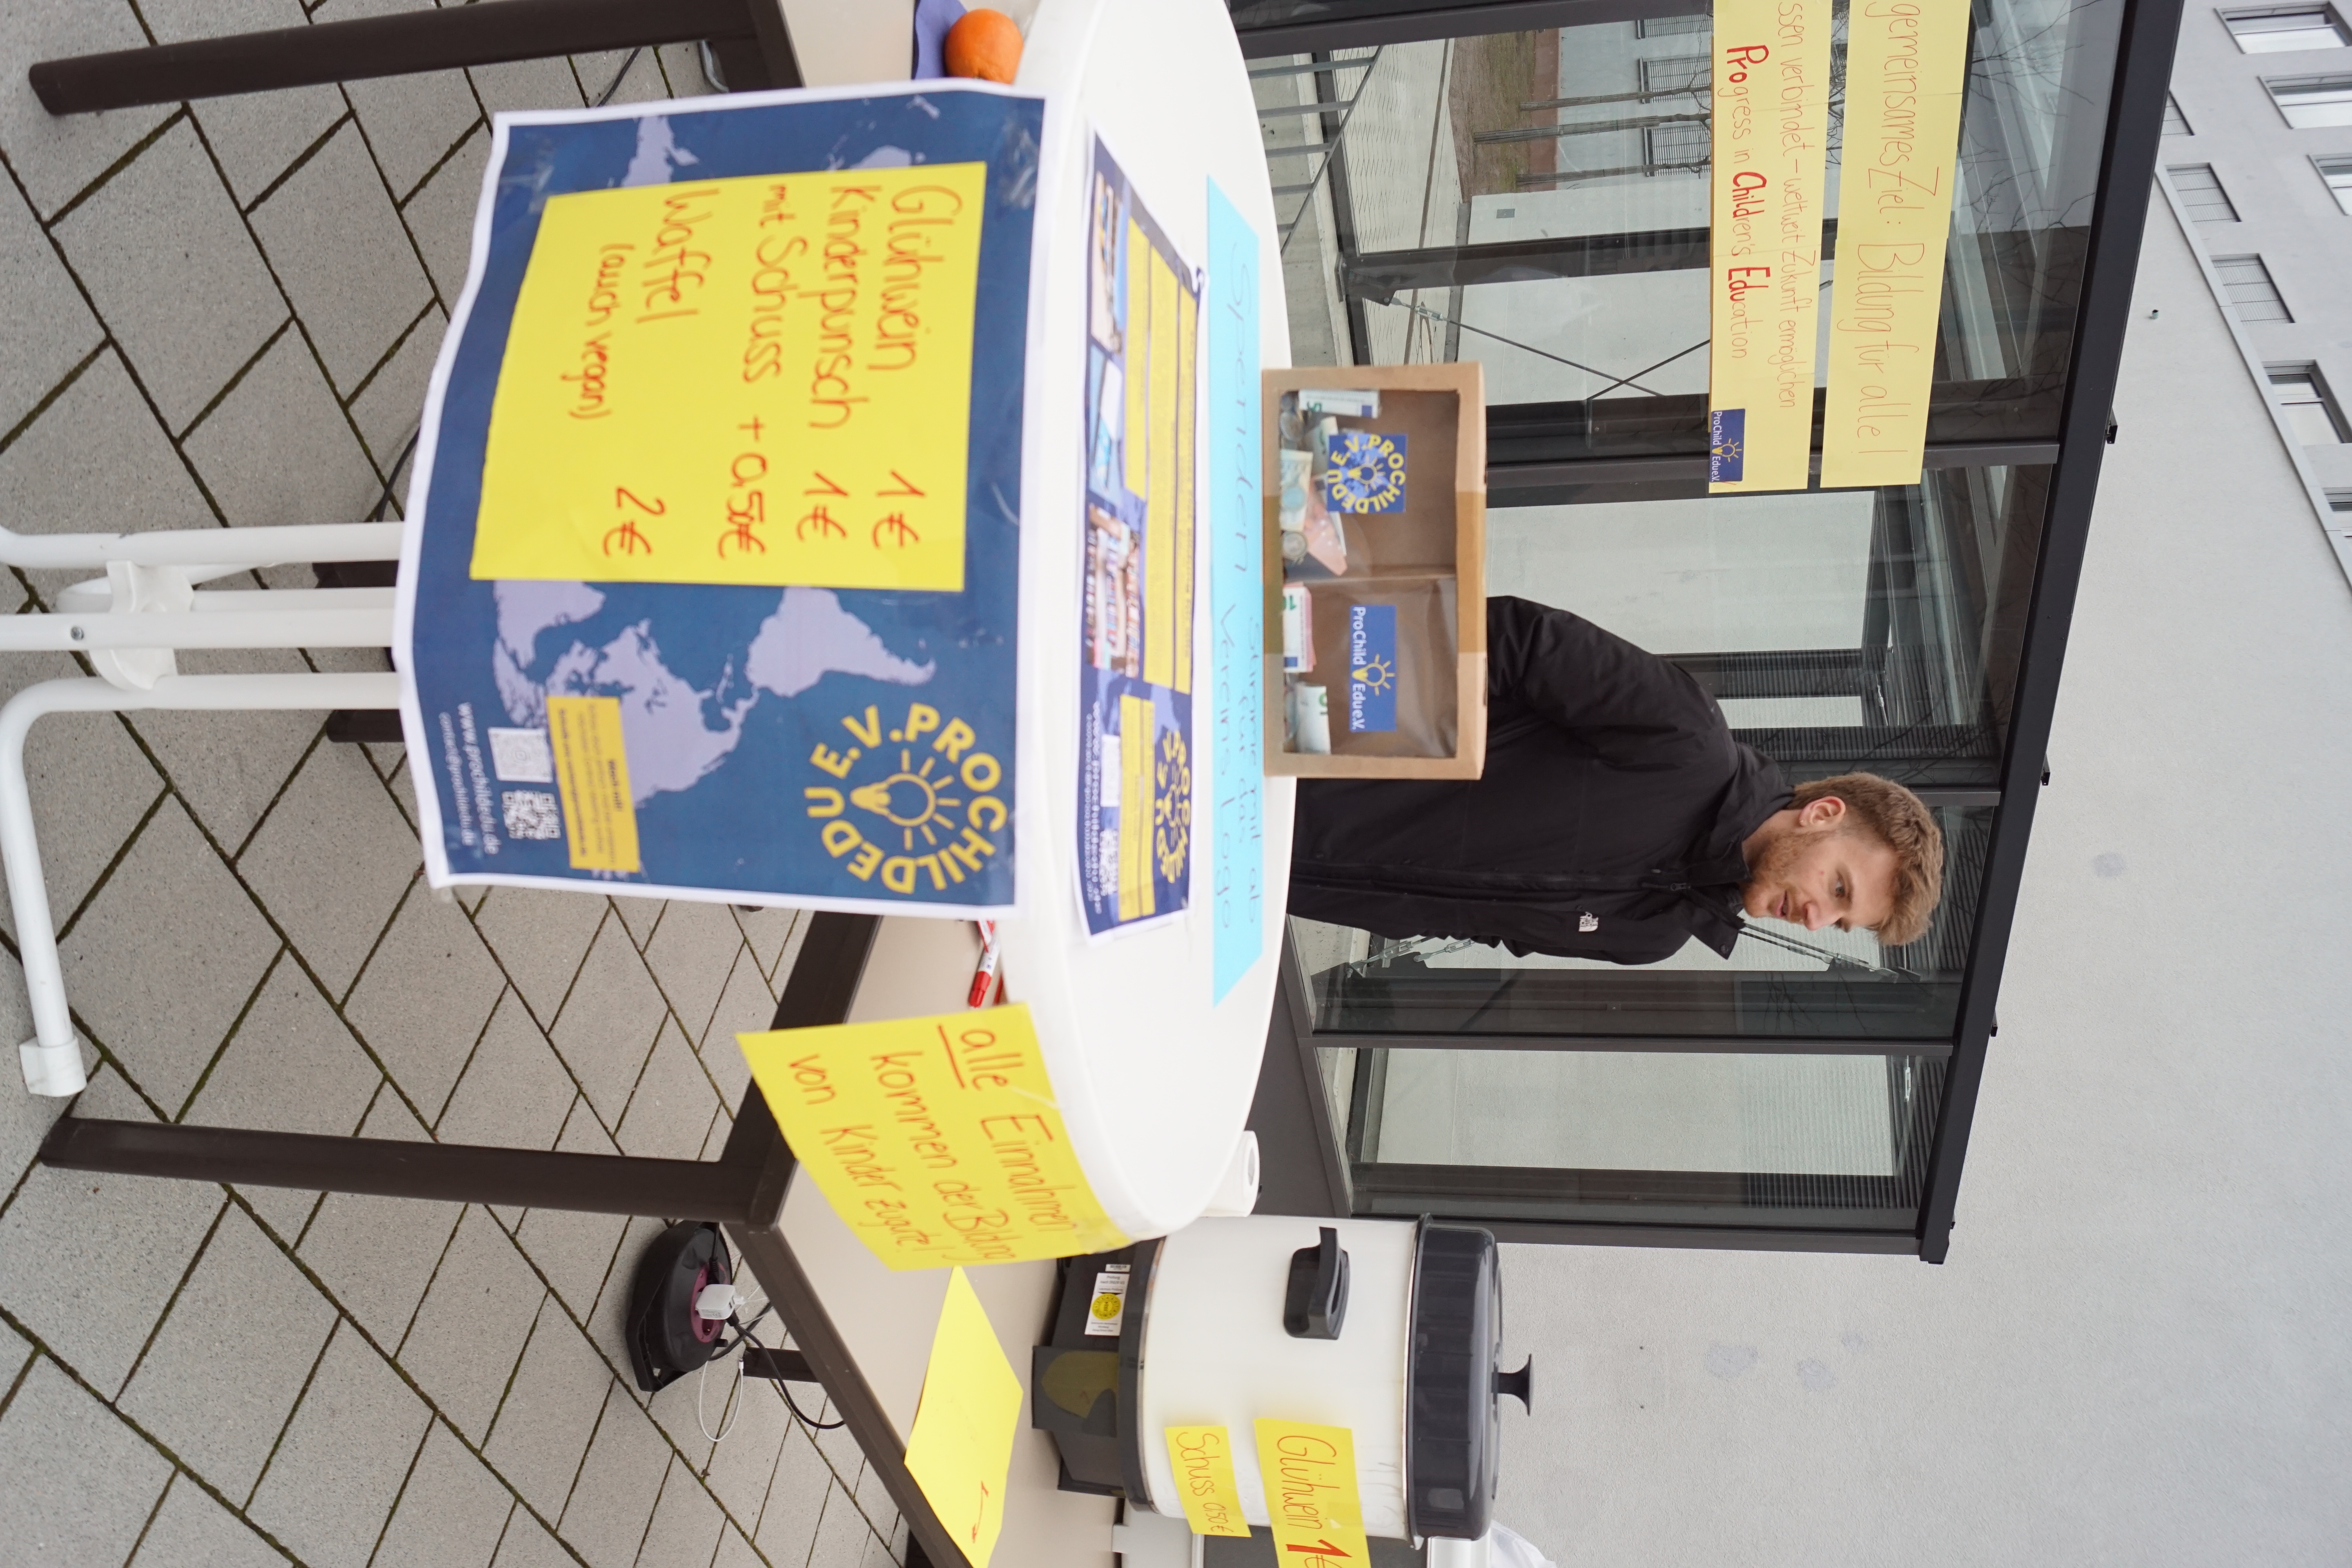 gemeinsames Ziel: Bildung für alle!
ssen verbindet – weltweit Zukunft ermöglichen
Progress in Children's Education
ProChild Edu e.V.
PROCHILDEDU E.V.
ProChild Edu e.V.
Spenden
Vereinslogo
Glühwein 1€
Kinderpunsch 1€
mit Schuss + 0,50€
Waffel 2€
(auch vegan)
PROCHILDEDU E.V.
www.prochildedu.de
contact@prochildedu.de
alle Einnahmen
kommen der Bildung
von Kinder zugute!
Glühwein 1€
Schuss 0,50€